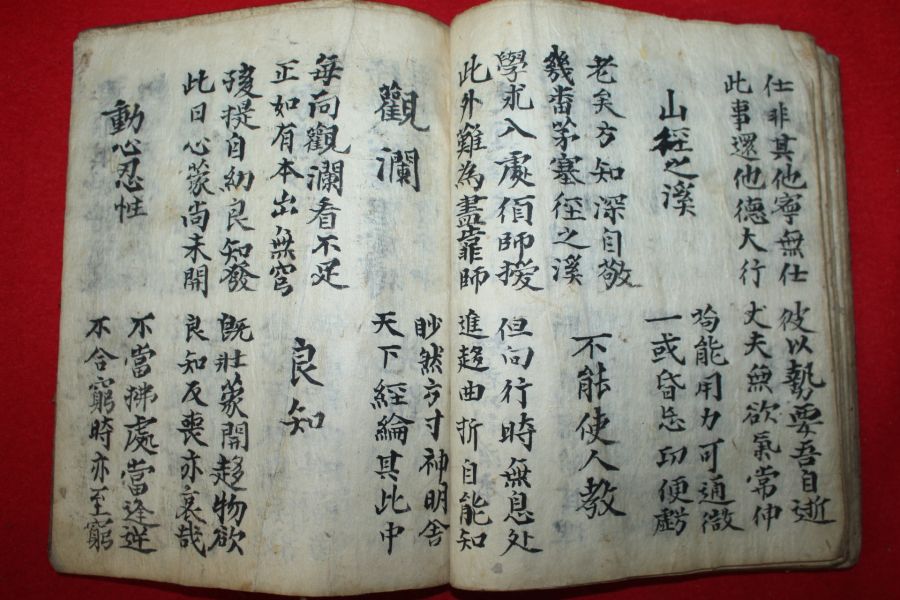 仕非其他寧無仕
彼以勢要吾自逝
此事還他德大行
丈夫無欲氣常伸
山徑之溪
苟能用力可通微
一或昏忘功便虧
老矣方知深自敬
幾番茅塞徑之溪
不能使人教
學求入處須師授
但向行時無息处
此外難為盡靠師
進趍曲折自能知
觀瀾
眇然方寸神明舍
天下經綸其此中
每向觀瀾看不足
正如有本出無窮
良知
孩提自幼良知發
既壯蒙開趍物欲
此日心蒙尚未開
良知反喪亦哀哉
動心忍性
不當拂處當逢逆
不合窮時亦至窮